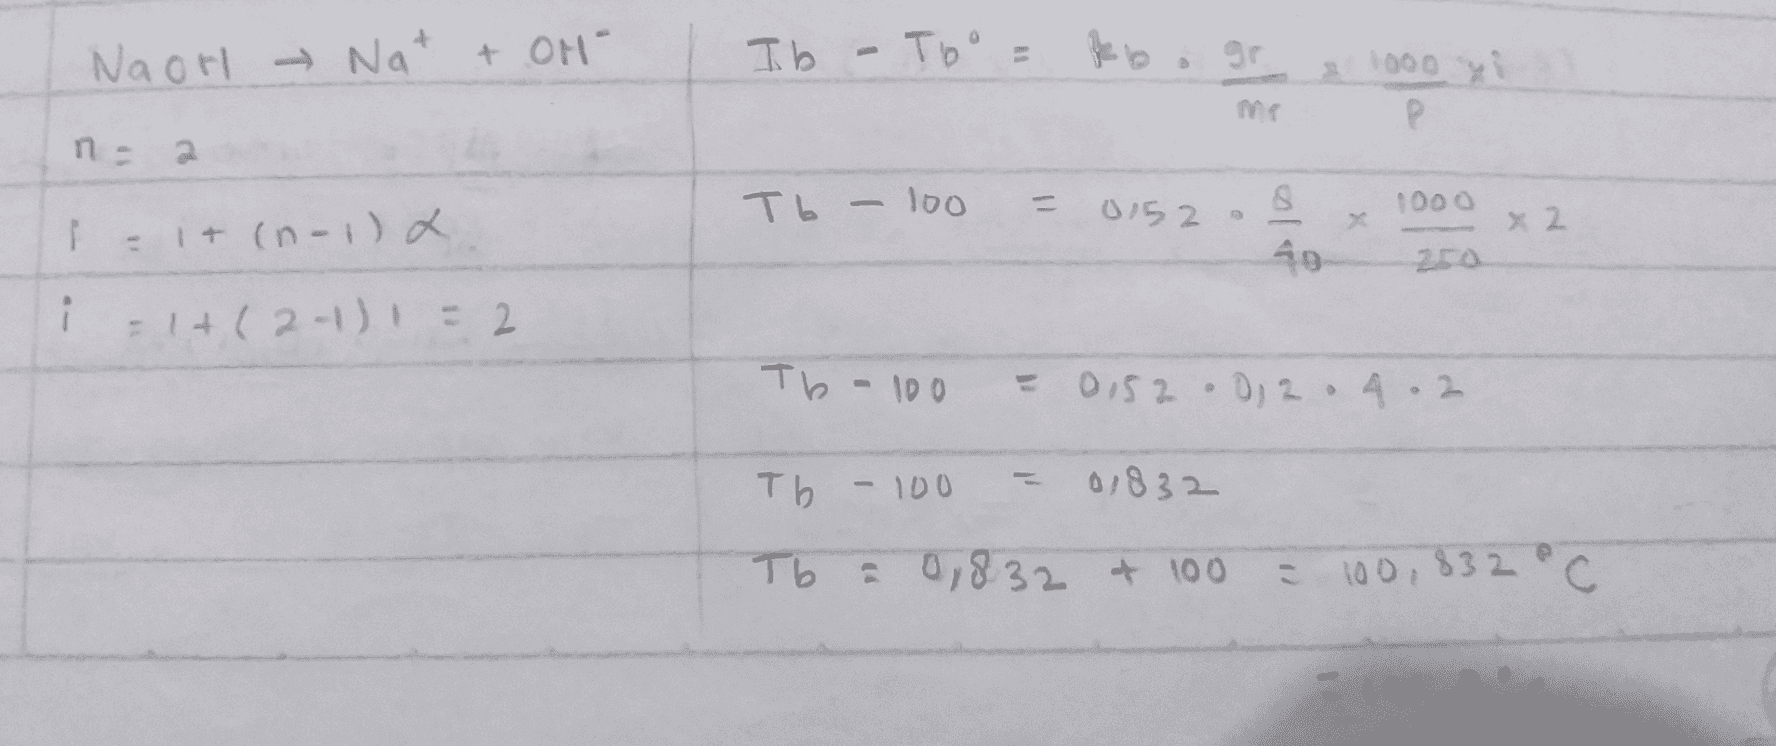 NaOH → Na⁺ + OH⁻
n = 2
i = 1 + (n-1) α
i = 1 + (2-1) 1 = 2
Tb - Tb° = kb . gr/mr x 1000/p x i
Tb - 100 = 0,52 . 8/40 x 1000/250 x 2
Tb - 100 = 0,52 . 0,2 . 4 . 2
Tb - 100 = 0,832
Tb = 0,832 + 100 = 100,832 °C